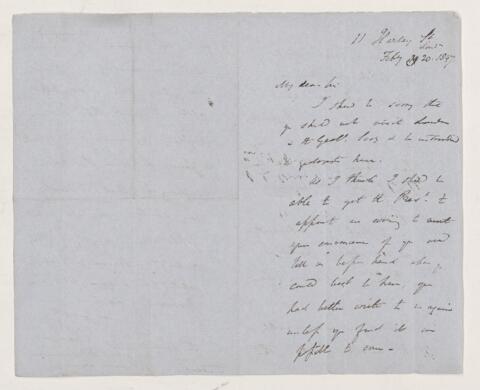 11 Harley St
Lond
Feby 20. 1847
My dear Sir
I shd be sorry that
you should not visit London
& the Geol. Socy & be introduced
to geologists here.
As I think I shd be
able to get the Presd. to
appoint an evening to suit
your convenience if you wd
tell us before hand when you
could best be here, you
had better write to me again
unless you find it im
possible to come -